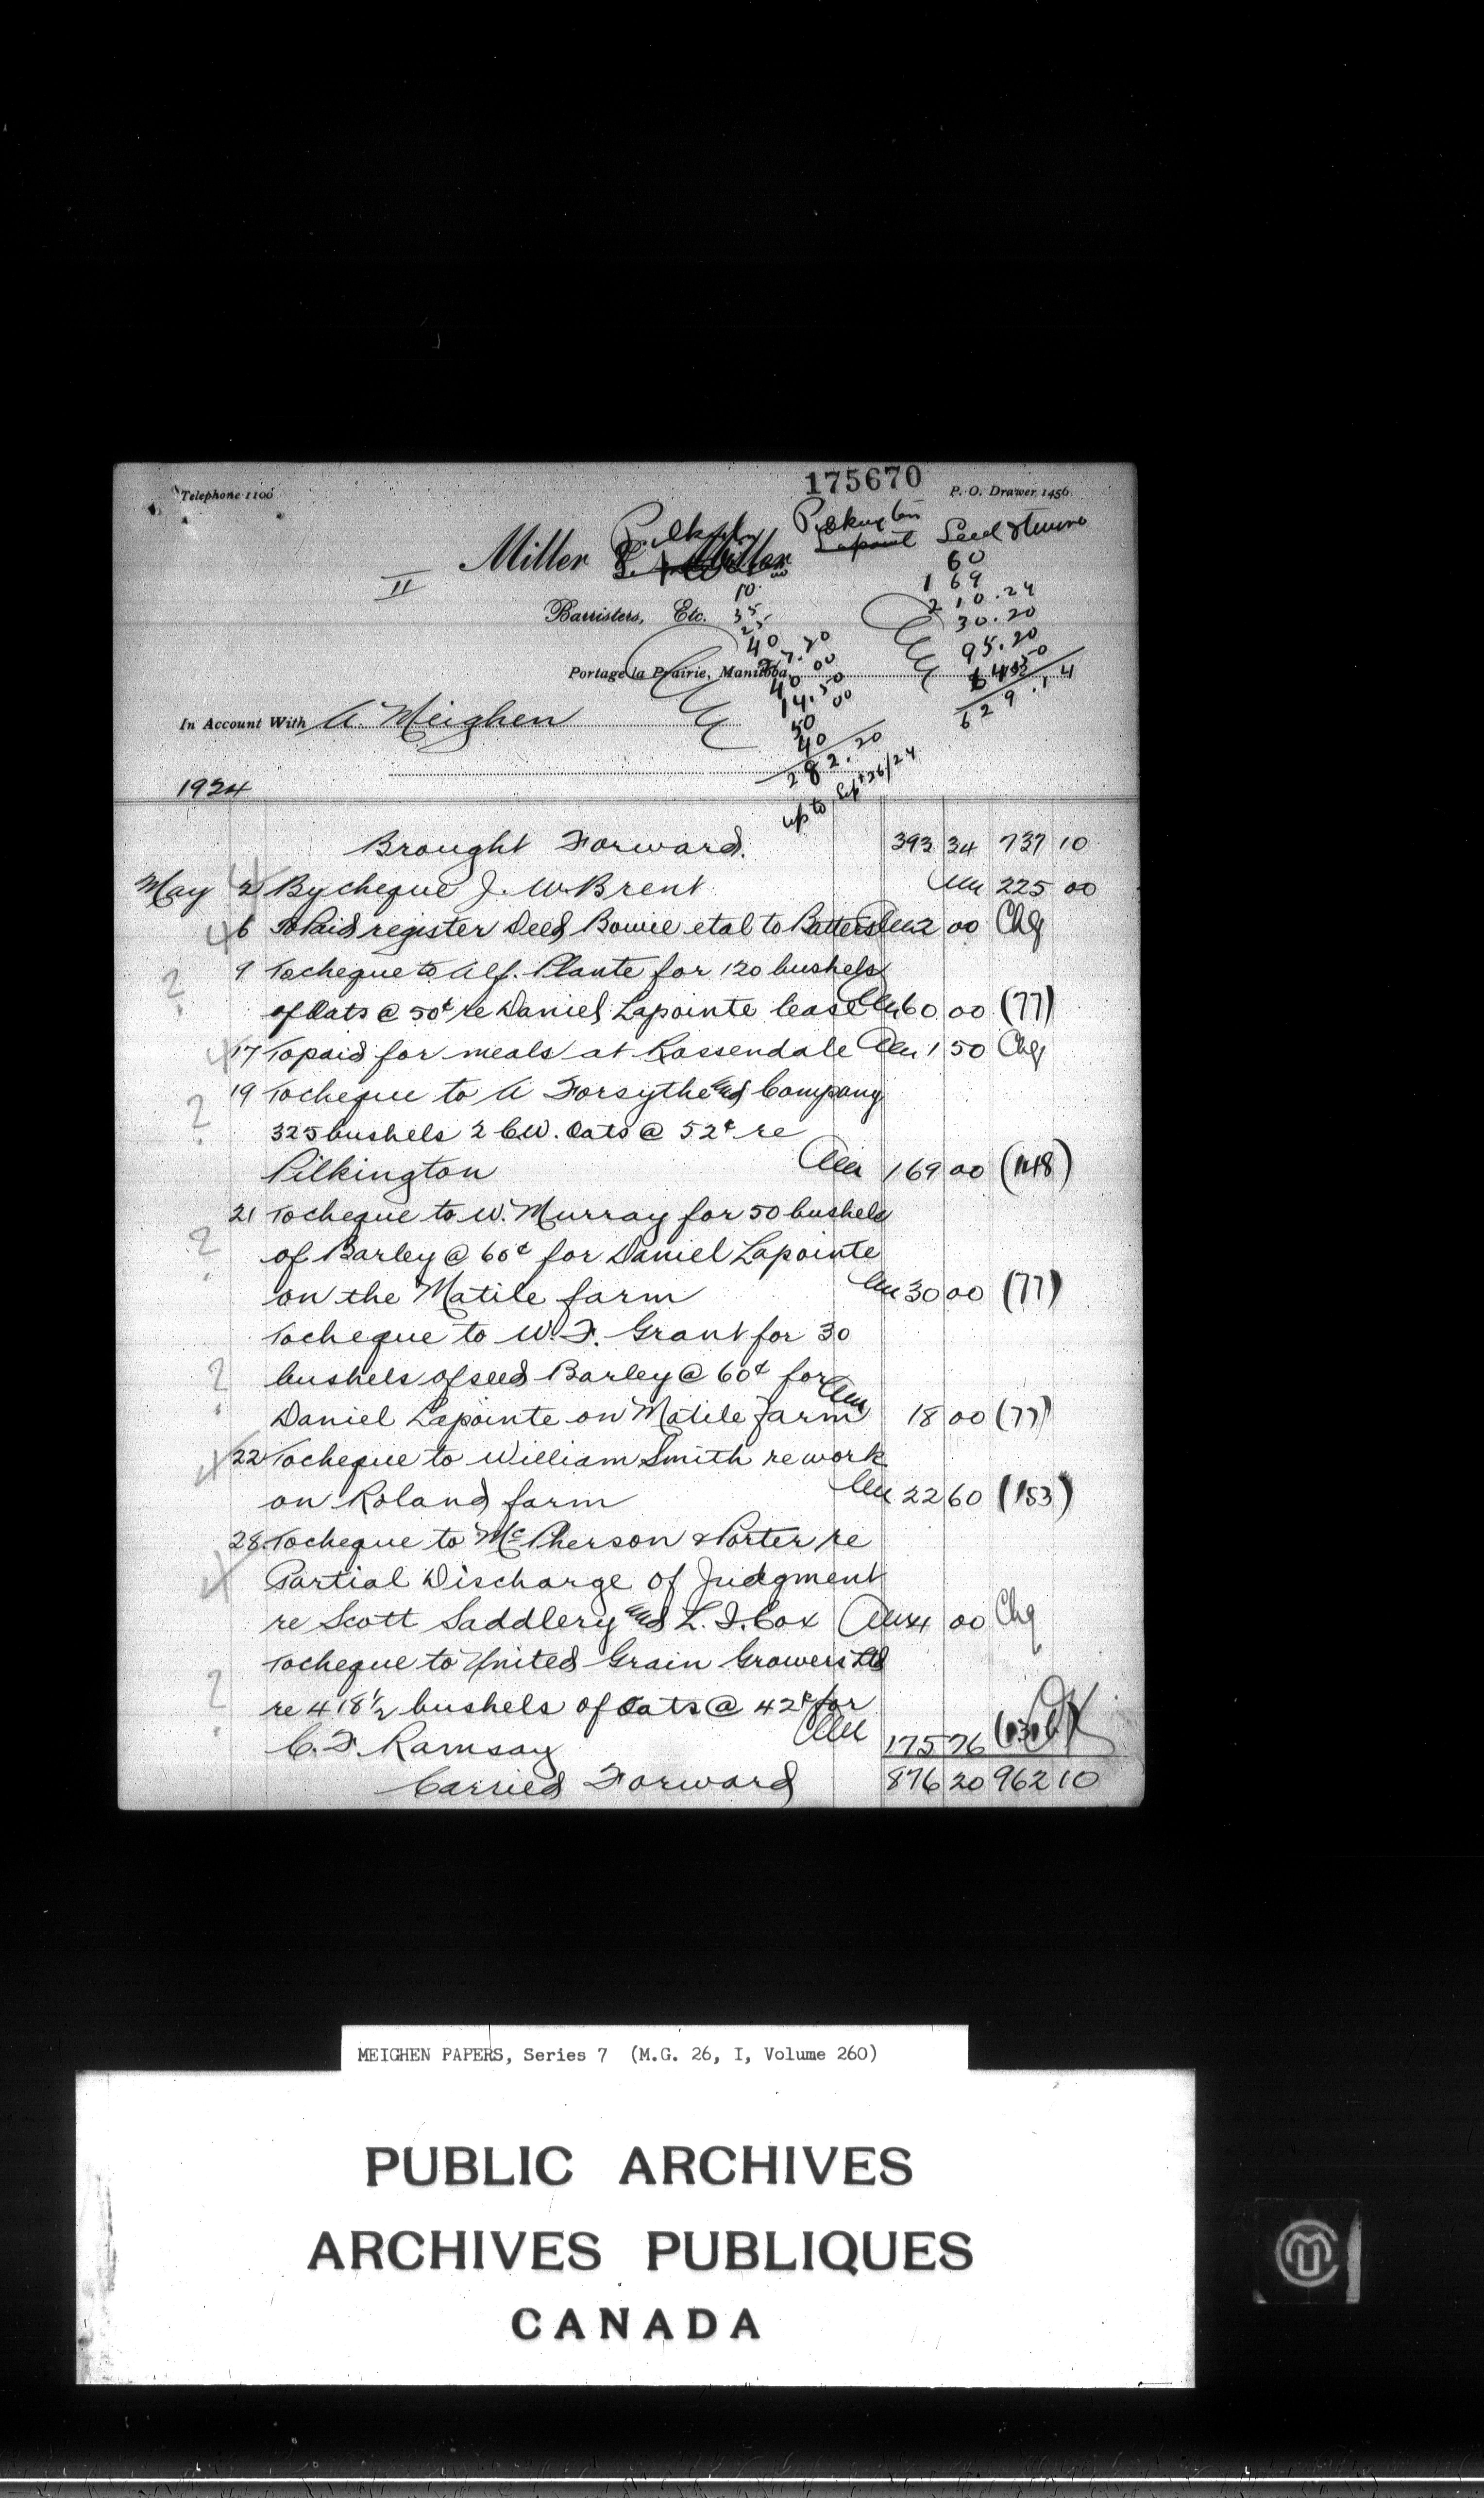 175670
Telephone 1100
P. O. Drawer 1456
Pilkington
Lapoint
Seed & twine
Miller & Miller
II
Barristers, Etc.
Portage la Prairie, Manitoba
In Account With A. Meighen
10
35
25
40
40 00
14.50
50 00
40
282.20
up to Sept 26/24
60
169
210.24
30.20
95.20
629.14
1924
Brought Forward. 393 34 737 10
May 2 By cheque J. W. Brent 225 00
6 To Paid register Deed Bowie et al to 2 00 Chg
9 To cheque to Alf. Plante for 120 bushels
? of Oats @ 50¢ re Daniel Lapointe lease 60 00 (77)
17 To paid for meals at Rossendale 1 50 Chg
19 To cheque to A Forsythe and Company
? 325 bushels 2 C.W. Oats @ 52¢ re
Pilkington 169 00 (148)
21 To cheque to W. Murray for 50 bushels
? of Barley @ 60¢ for Daniel Lapointe
on the Matile farm 30 00 (77)
To cheque to W. F. Grant for 30
? bushels of seed Barley @ 60¢ for
Daniel Lapointe on Matile farm 18 00 (77)
22 To cheque to William Smith re work
on Roland farm 22 60 (153)
28 To cheque to McPherson & Porter re
Partial Discharge of Judgment
re Scott Saddlery and L. F. Cox 4 00 Chg
To cheque to United Grain Growers Ltd
? re 418 1/2 bushels of Oats @ 42¢ for
C. F. Ramsay 175 76
Carried Forward 876 20 962 10
MEIGHEN PAPERS, Series 7 (M.G. 26, I, Volume 260)
PUBLIC ARCHIVES
ARCHIVES PUBLIQUES
CANADA